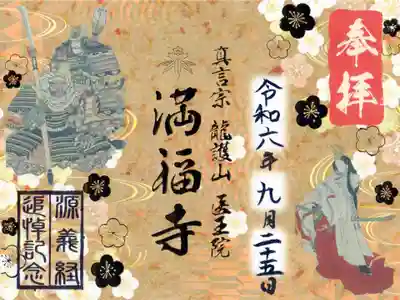 奉拝
令和六年 九月二十五日
真言宗 龍護山 医王院
満福寺
源義経
追悼記念